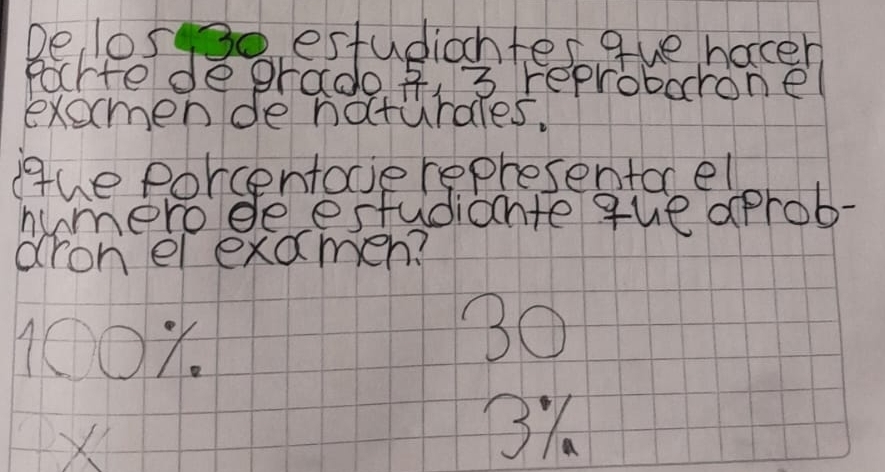 De los 30 estudiantes que hacen
parte de grado 7, 3 reprobaron el
examen de naturales.
¿que porcentaje representa el
numero de estudiante que aprob-
aron el examen?
100% 30
X 3%